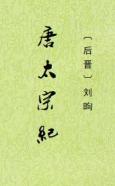 唐太宗紀
〔后晋〕刘昫